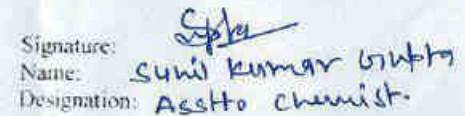 Signature: Gupta
Name: Sunil Kumar Gupta
Designation: Asstto Chemist.